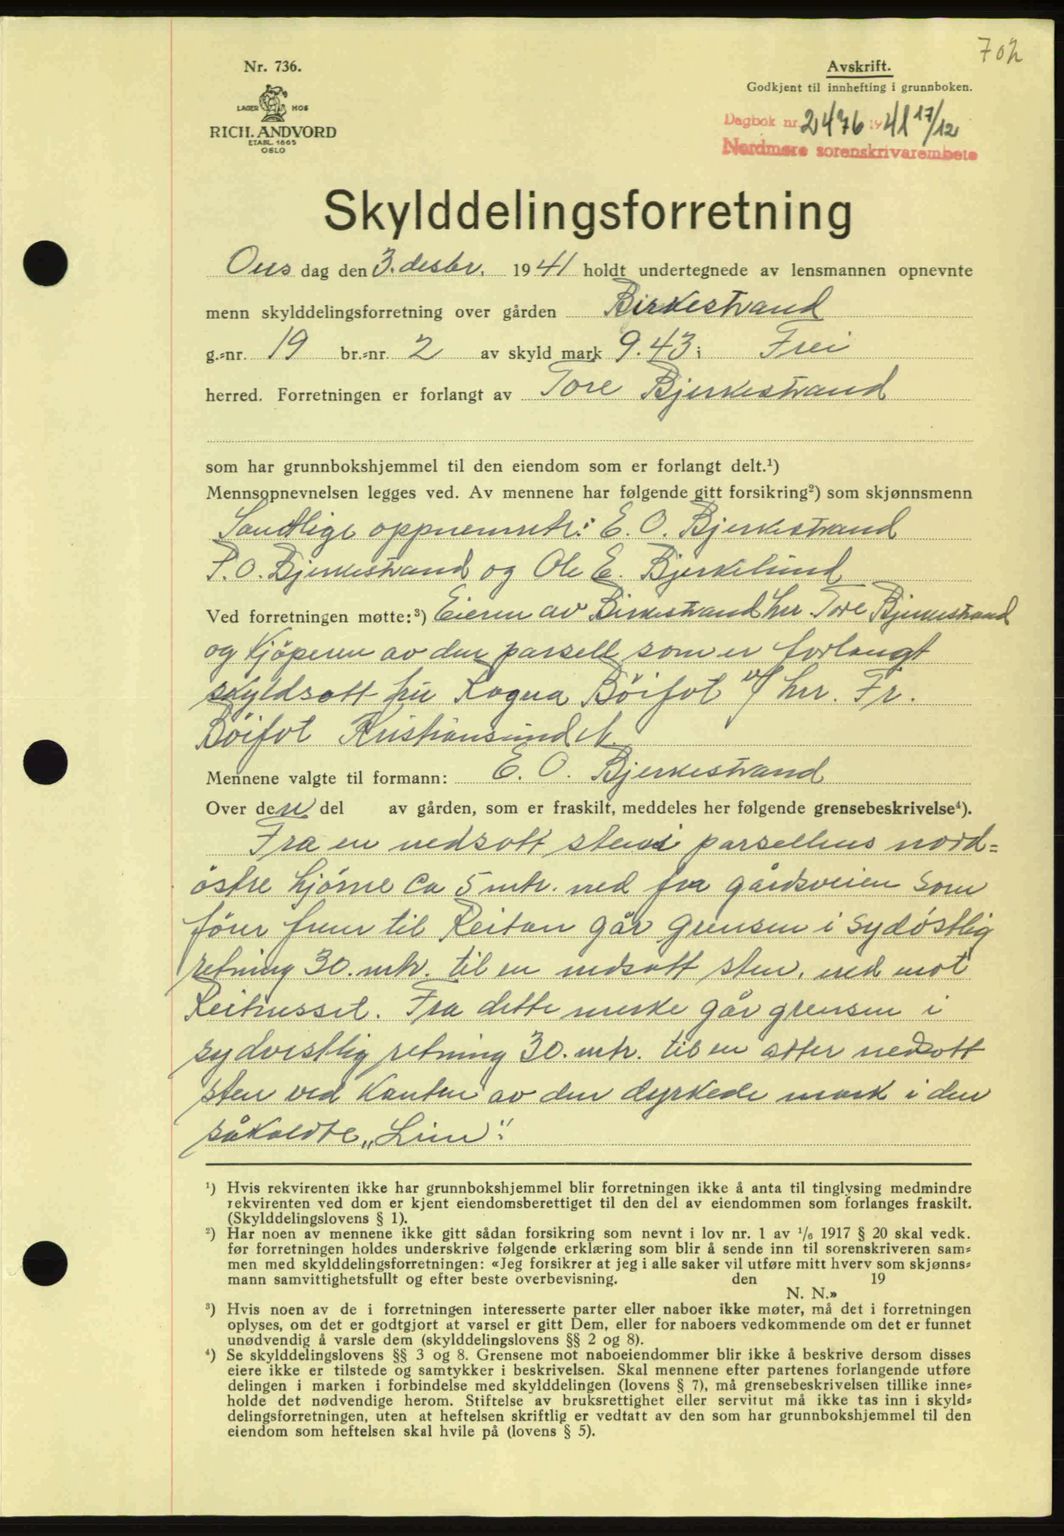 702
Nr. 736.
LAGER HOS
RICH. ANDVORD
ETABL. 1865
OSLO
Avskrift.
Godkjent til innhefting i grunnboken.
Dagbok nr. 2476 1941 17/12
Nordmøre sorenskrivarembete
Skylddelingsforretning
Ons dag den 3. desbr. 1941 holdt undertegnede av lensmannen opnevnte
menn skylddelingsforretning over gården Birkestrand
g.=nr. 19 br.=nr. 2 av skyld mark 9.43 i Frei
herred. Forretningen er forlangt av Tore Bjerkestrand
som har grunnbokshjemmel til den eiendom som er forlangt delt.¹)
Mennsopnevnelsen legges ved. Av mennene har følgende gitt forsikring²) som skjønnsmenn
Samtlige oppnevnte: E. O. Bjerkestrand
P. O. Bjerkestrand og Ole E. Bjerkelund
Ved forretningen møtte:³) Eieren av Birkestrand herr Tore Bjerkestrand
og kjöperen av den parsell som er forlangt
skyldsatt fru Ragna Böifot v/ herr. Fr.
Böifot Kristiansund N.
Mennene valgte til formann: E. O. Bjerkestrand
Over den del av gården, som er fraskilt, meddeles her følgende grensebeskrivelse⁴).
Fra en nedsatt sten i parsellens nord=
östre hjörne ca 5 mtr. ned fra gårdsveien som
förer frem til Reitan går grensen i sydöstlig
retning 30. mtr. til en nedsatt sten, ned mot
Fra dette merke går grensen i
sydvestlig retning 30. mtr. til en atter nedsatt
sten ved kanten av den dyrkede mark i den
såkaldte „Lien".
¹) Hvis rekvirenten ikke har grunnbokshjemmel blir forretningen ikke å anta til tinglysing medmindre
rekvirenten ved dom er kjent eiendomsberettiget til den del av eiendommen som forlanges fraskilt.
(Skylddelingslovens § 1).
²) Har noen av mennene ikke gitt sådan forsikring som nevnt i lov nr. 1 av ¹/₆ 1917 § 20 skal vedk.
før forretningen holdes underskrive følgende erklæring som blir å sende inn til sorenskriveren sam=
men med skylddelingsforretningen: «Jeg forsikrer at jeg i alle saker vil utføre mitt hverv som skjønns=
mann samvittighetsfullt og efter beste overbevisning. den 19
N. N.»
³) Hvis noen av de i forretningen interesserte parter eller naboer ikke møter, må det i forretningen
oplyses, om det er godtgjort at varsel er gitt Dem, eller for naboers vedkommende om det er funnet
unødvendig å varsle dem (skylddelingslovens §§ 2 og 8).
⁴) Se skylddelingslovens §§ 3 og 8. Grensene mot naboeiendommer blir ikke å beskrive dersom disses
eiere ikke er tilstede og samtykker i beskrivelsen. Skal mennene efter partenes forlangende utføre
delingen i marken i forbindelse med skylddelingen (lovens § 7), må grensebeskrivelsen tillike inne=
holde det nødvendige herom. Stiftelse av bruksrettighet eller servitut må ikke tas inn i skyld=
delingsforretningen, uten at heftelsen skriftlig er vedtatt av den som har grunnbokshjemmel til den
eiendom som heftelsen skal hvile på (lovens § 5).